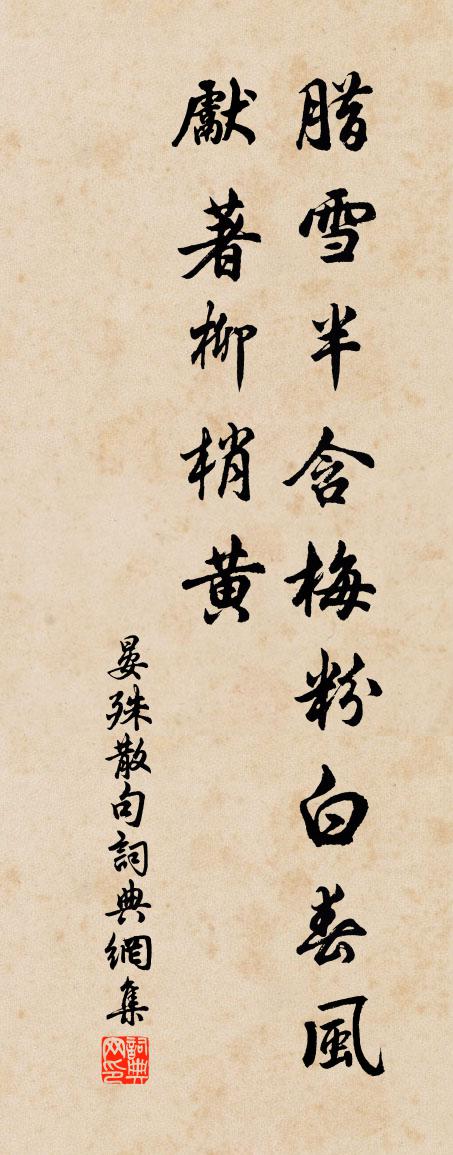 腊雪半含梅粉白春風
獻著柳梢黄
晏殊散句詞典網集
詞典
网印